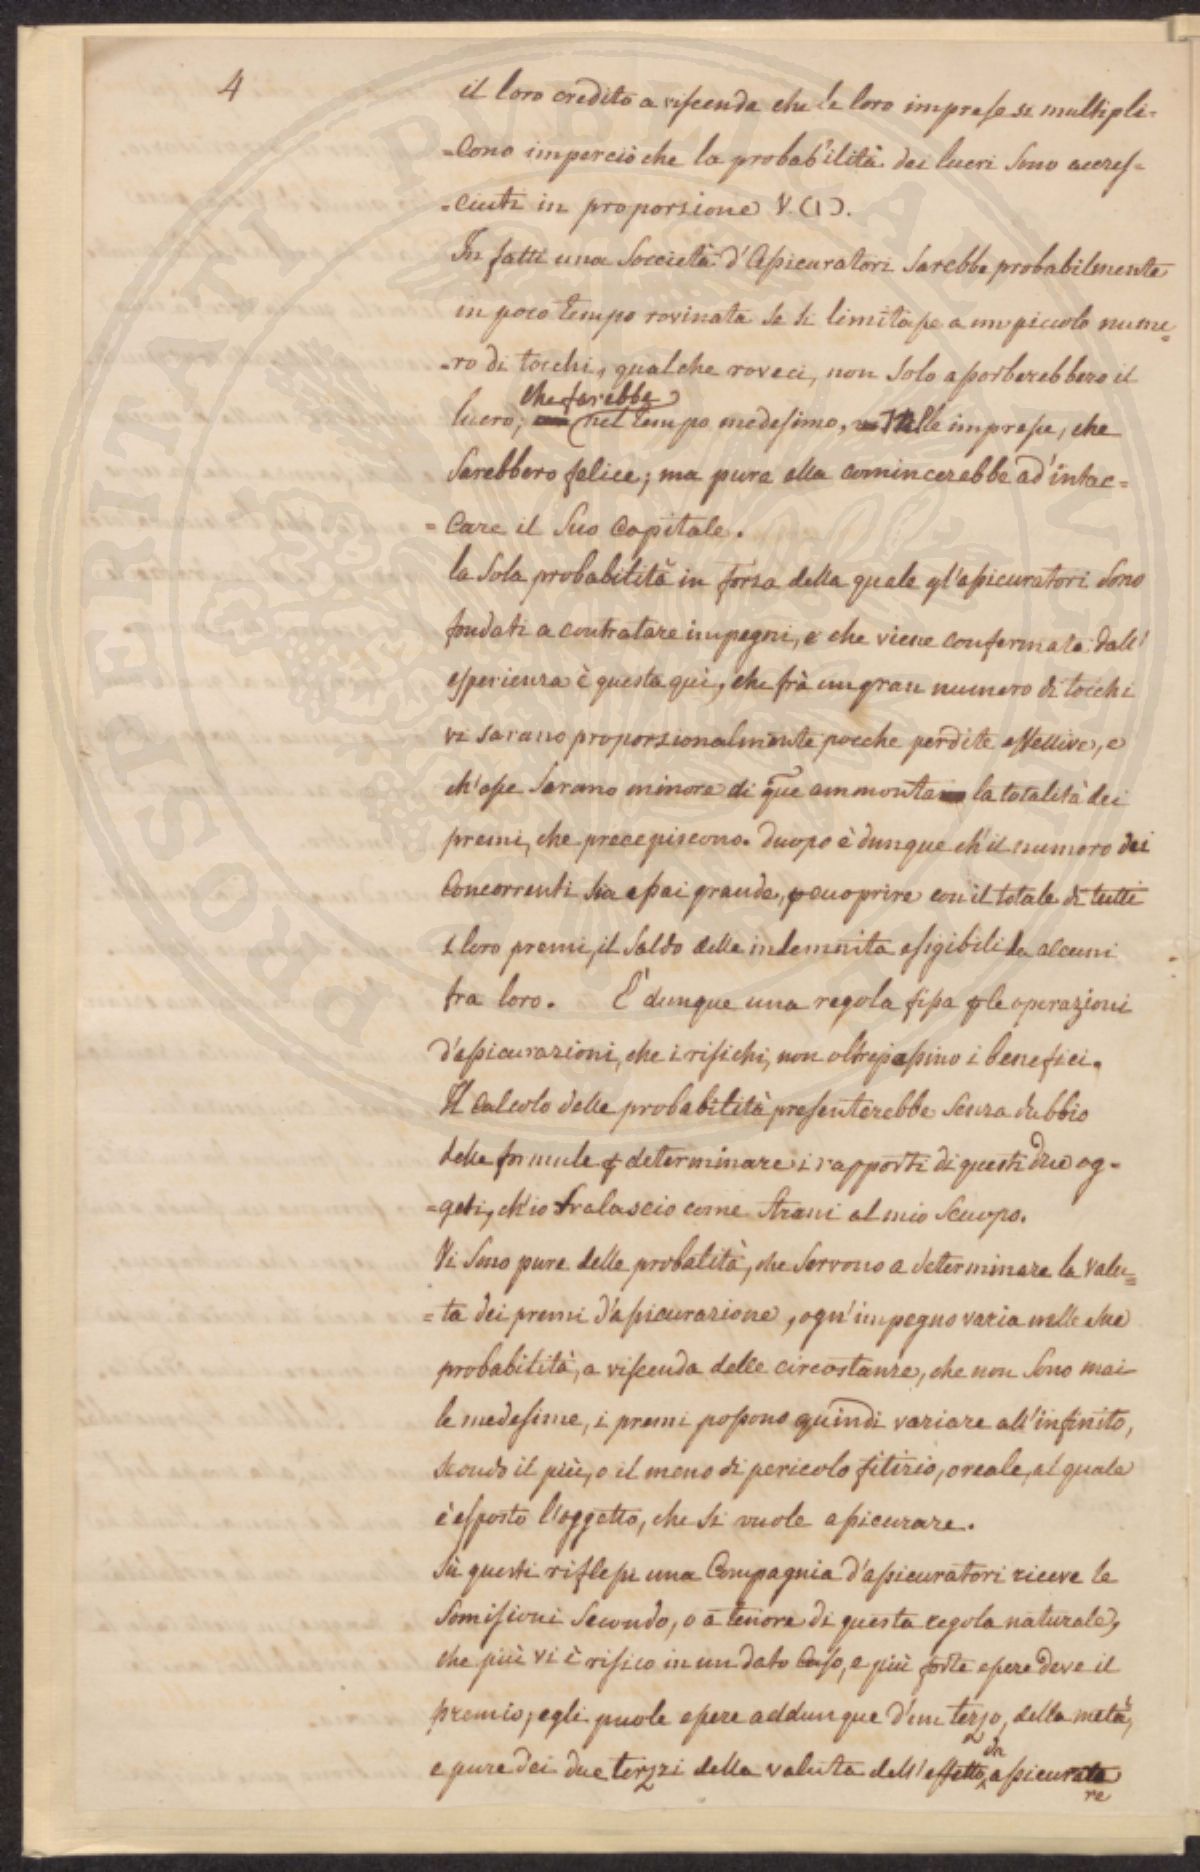 4
il loro credito a viscenda che le loro imprese si multipli-
=cono imperciò che la probabilità dei lucri sono accres-
=ciuti in proporzione V. (1).
In fatti una Soccietà d'Assicuratori sarebbe probabilmente
in poco tempo rovinata se si limitasse a un piccolo nume=
=ro di tocchi, qualche roveci, non solo assorberebbero il
che farebbe
lucro; nel tempo medesimo, nelle imprese, che
sarebbero felice; ma pure ella comincerebbe ad'intac=
=care il suo Capitale.
la sola probabilità in forza della quale gl'assicuratori sono
fondati a contratare impegni, e che viene confermata dall'
esperienza è questa quì, che frà un gran numero di tocchi
vi sarano proporzionalmente pocche perdite effettive, e
ch'esse sarano minore di que ammonta la totalità dei
premi, che precepiscono. Duopo è dunque ch'il numero dei
Concorrenti sia assai grande, p cuoprire con il totale di tutti
i loro premi, il saldo delle indemnita esigibili da alcuni
fra loro. È dunque una regola fissa p le operazioni
d'assicurazioni, che i risichi, non oltrepassino i benefici.
Il calcolo delle probabilità presenterebbe senza dubbio
delle formule p determinare i rapporti di questi due og=
=geti, ch'io tralascio come strani al mio scuopo.
Vi sono pure delle probalità, che servono a determinare la valu=
=ta dei premi d'assicurazione, ogn'impegno varia nelle sue
probabilità, a viscenda delle circostanze, che non sono mai
le medesime, i premi possono quindi variare all'infinito,
secondo il più, o il meno di pericolo fitizio, o reale, al quale
è esposto l'oggetto, che si vuole assicurare.
Sù questi riflessi una Compagnia d'assicuratori riceve le
somissioni secondo, o a tenore di questa regola naturale,
che più vi è risico in un dato caso, e più forte essere deve il
premio; egli puole essere addunque d'un terzo, della metà,
e pure dei due terzi della valuta dell'effetto da assicurare